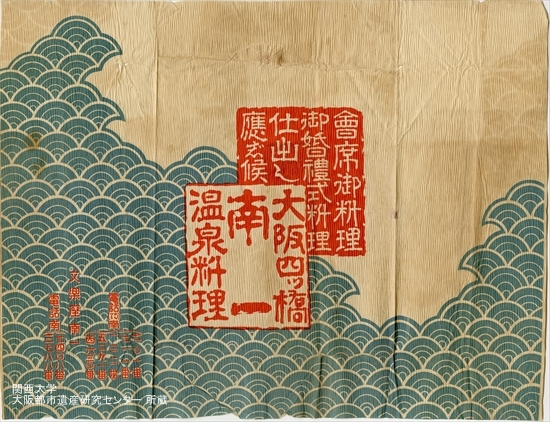 會席御料理
御婚禮式料理
仕出し
應 候
大阪四ツ橋
南一
温泉料理
電話南
文樂座南一
電話南
関西大学
大阪都市遺産研究センター 所蔵